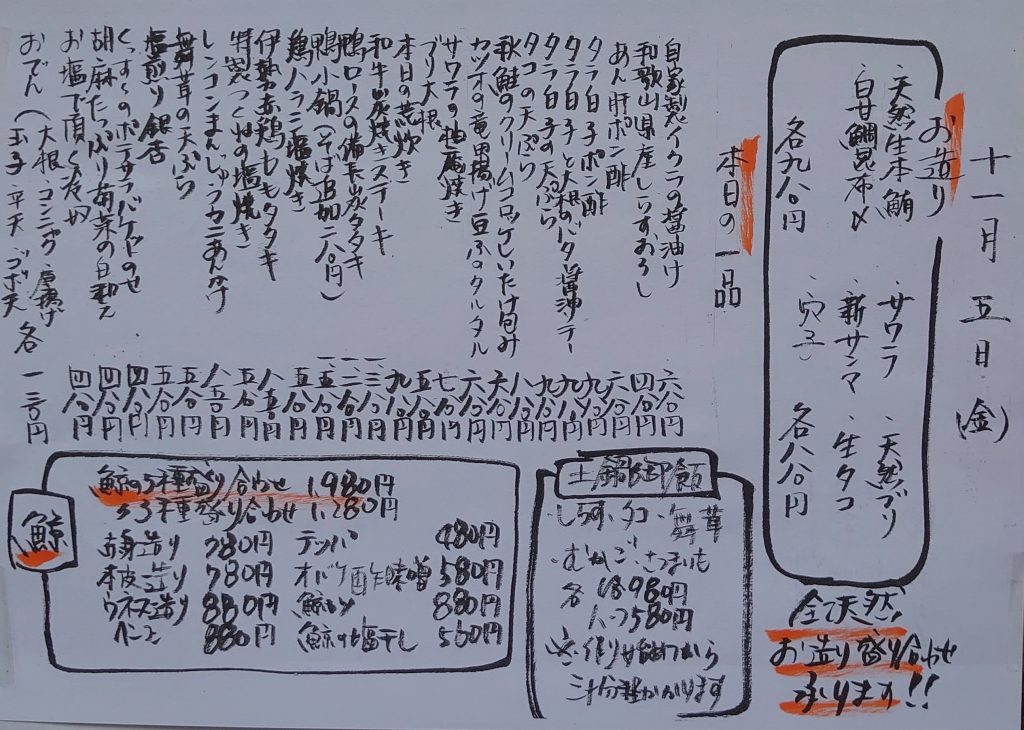 十一月 五日 (金)
お造り
・天然生本鮪
・白甘鯛昆布〆
各九八〇円
・サワラ ・天然ブリ
・新サンマ ・生タコ
・穴子
各八八〇円
全て天然
お造り盛り合わせ
承ります!!
本日の一品
自家製イクラの醤油け 六八〇円
和歌山県産しらすおろし 四八〇円
あん肝ポン酢 六八〇円
タラ白子ポン酢
タラ白子と大根のバタ醤油ソテー 九八〇円
タラ白子の天ぷら 九八〇円
タコの天ぷら 八八〇円
秋鮭のクリームコロッケしいたけ包み 六八〇円
カツオの竜田揚げ豆ふのタルタル
サワラの柚庵焼き
ブリ大根 五八〇円
本日の荒炊き 九八〇円
和牛炭焼きステーキ
鴨ロースの備長炭タタキ
鴨小鍋(そば追加二八〇円)
鶏ハラミ塩焼き 五八〇円
伊勢赤鶏ももタタキ 八五〇円
特製つくねの塩焼き 五八〇円
レンコンまんじゅうカニあんかけ 八五〇円
舞茸の天ぷら 五八〇円
塩煎り銀杏 五八〇円
四八〇円
胡麻たっぷり菊菜の白和え 四八〇円
お塩で頂く冷奴 四八〇円
おでん (大根・コンニャク・厚揚げ
玉子・平天・ゴボ天 各一三〇円
鯨
鯨の5種盛り合わせ 1,980円
〃3種盛り合わせ 1,280円
赤身造り 780円
本皮造り 780円
ウネス造り 880円
ベーコン 880円
テッパ 980円
オバケ酢味噌 580円
880円
鯨の塩干し 580円
土鍋御飯
・しらす・タコ・舞茸
・むかご・さつまいも
各 1合980円
1.5合1,580円
※作り始めてから
三十分程かかります